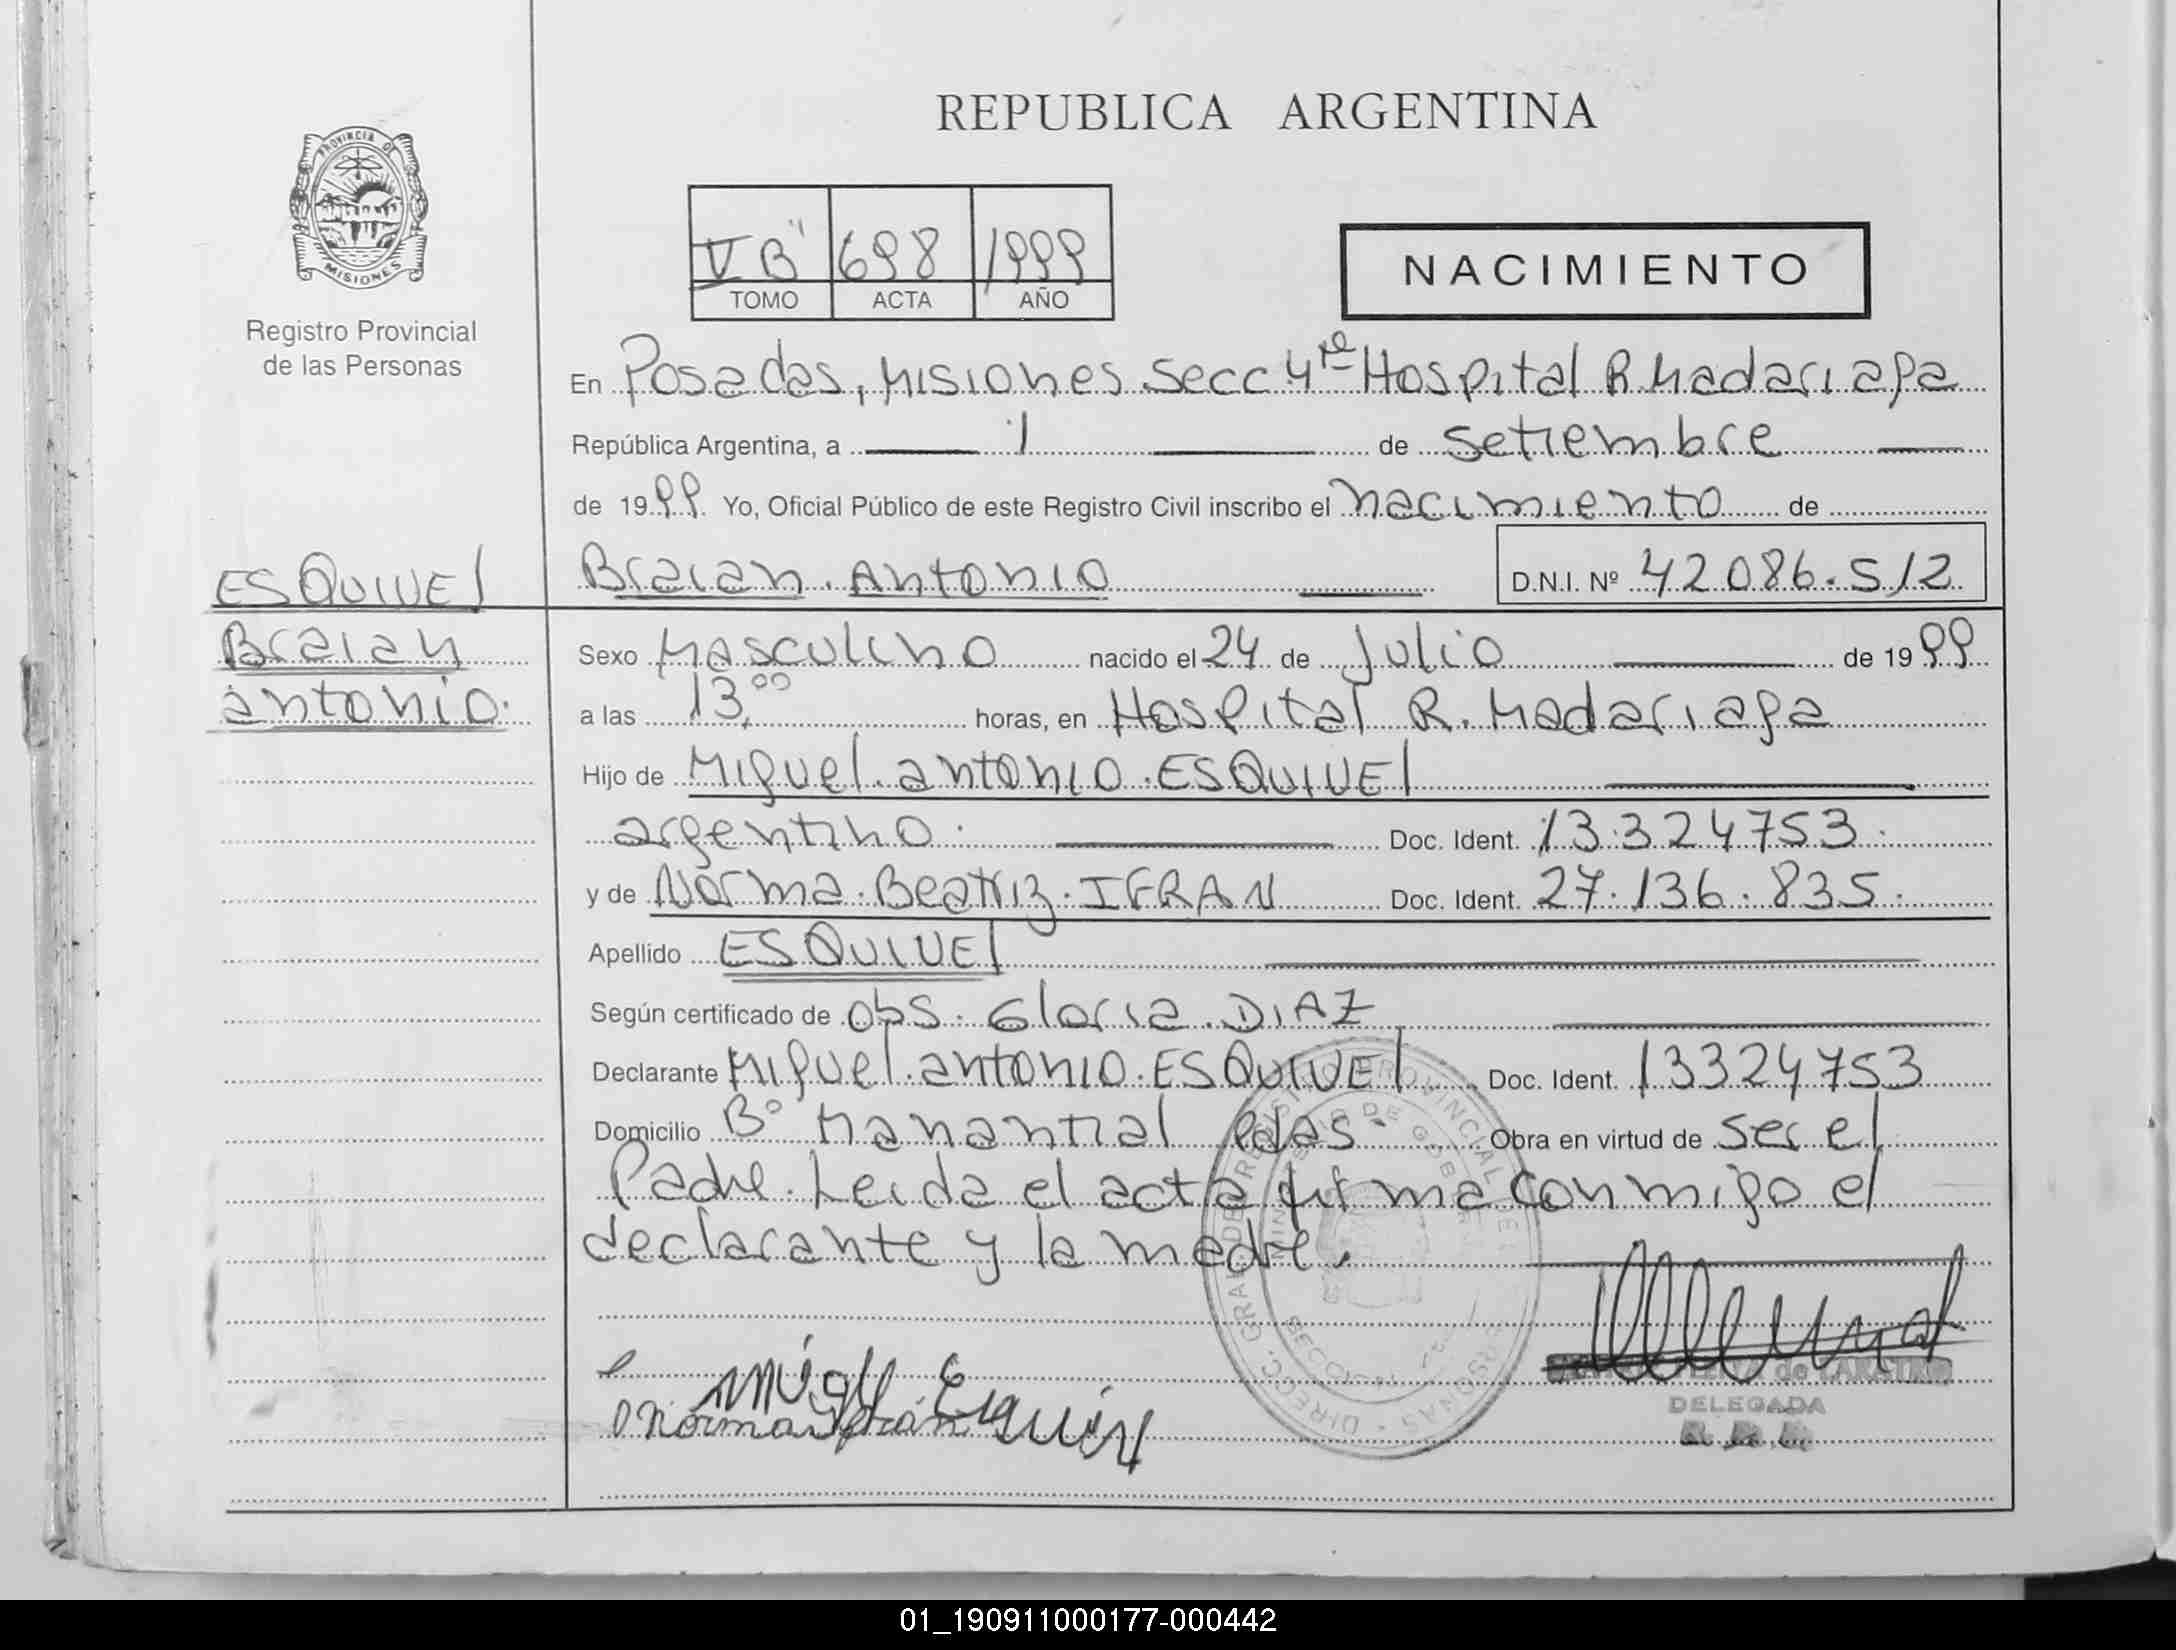 REPUBLICA ARGENTINA
PROVINCIA DE
MISIONES
Registro Provincial
de las Personas
V B" 698 1999
TOMO ACTA AÑO
NACIMIENTO
En Posadas, Misiones Secc 4ta Hospital R. Madariaga
República Argentina, a 1 de Setiembre
de 1999 Yo, Oficial Público de este Registro Civil inscribo el nacimiento de
Braian Antonio D.N.I. Nº 42086.512
ESQUIVEL
Braian
antonio.
Sexo Masculino nacido el 24 de Julio de 1999
a las 13,00 horas, en Hospital R. Madariaga
Hijo de Miguel antonio ESQUIVEL
argentino. Doc. Ident. 13324753.
y de Norma Beatriz IFRAN Doc. Ident. 27.136.835.
Apellido ESQUIVEL
Según certificado de Obs. Gloria DIAZ
Declarante Miguel antonio ESQUIVEL Doc. Ident. 13324753
Domicilio Bº Manantial Pdas. Obra en virtud de ser el
Padre. Leida el acta firma conmigo el
declarante y la madre.
Norma Ifrán
DELEGADA
01_190911000177-000442